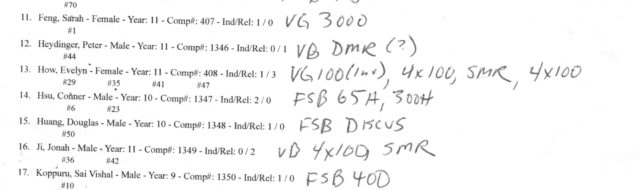 #70
11. Feng, Sarah - Female - Year: 11 - Comp#: 407 - Ind/Rel: 1 / 0 VG 3000
#1
12. Heydinger, Peter - Male - Year: 11 - Comp#: 1346 - Ind/Rel: 0 / 1 VB DMR (?)
#44
13. How, Evelyn - Female - Year: 11 - Comp#: 408 - Ind/Rel: 1 / 3 VG100(Inv), 4x100, SMR, 4x100
#29 #35 #41 #47
14. Hsu, Conner - Male - Year: 10 - Comp#: 1347 - Ind/Rel: 2 / 0 FSB 65H, 300H
#6 #23
15. Huang, Douglas - Male - Year: 10 - Comp#: 1348 - Ind/Rel: 1 / 0 FSB DISCUS
#50
16. Ji, Jonah - Male - Year: 11 - Comp#: 1349 - Ind/Rel: 0 / 2 VB 4x100, SMR
#36 #42
17. Koppuru, Sai Vishal - Male - Year: 9 - Comp#: 1350 - Ind/Rel: 1 / 0 FSB 400
#10